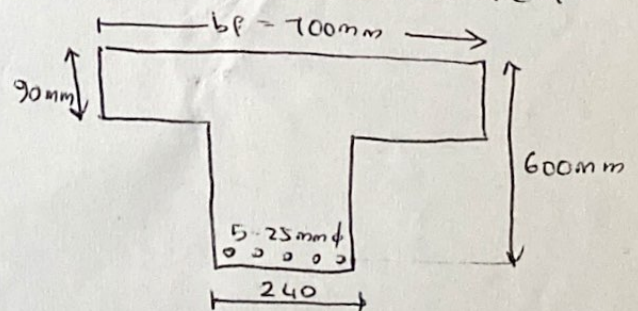 bf = 700mm
90mm
600mm
5-25mmϕ
240